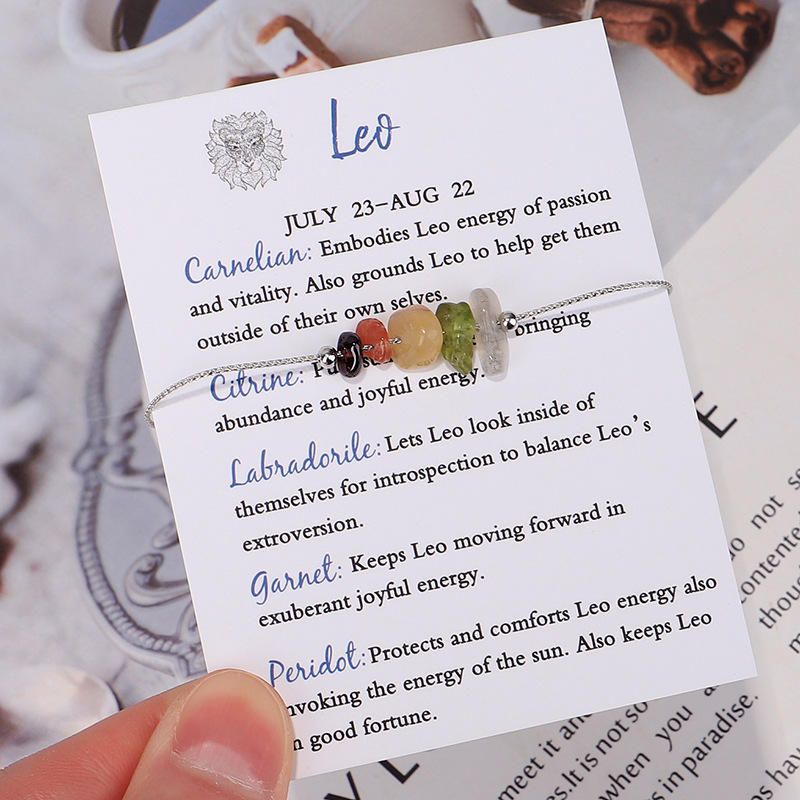 Leo
JULY 23-AUG 22
Carnelian: Embodies Leo energy of passion
and vitality. Also grounds Leo to help get them
outside of their own selves.
Citrine: bringing
abundance and joyful energy.
Labradorile: Lets Leo look inside of
themselves for introspection to balance Leo's
extroversion.
Garnet: Keeps Leo moving forward in
exuberant joyful energy.
Peridot: Protects and comforts Leo energy also
nvoking the energy of the sun. Also keeps Leo
n good fortune.
E
do not so
contente
thou
meet it an
s.It is not so
when you a
s in paradise.
s hav